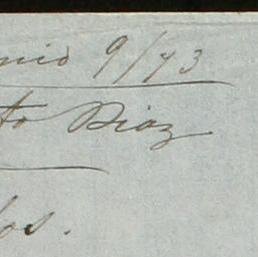 nio 9/73
to Diaz
los.